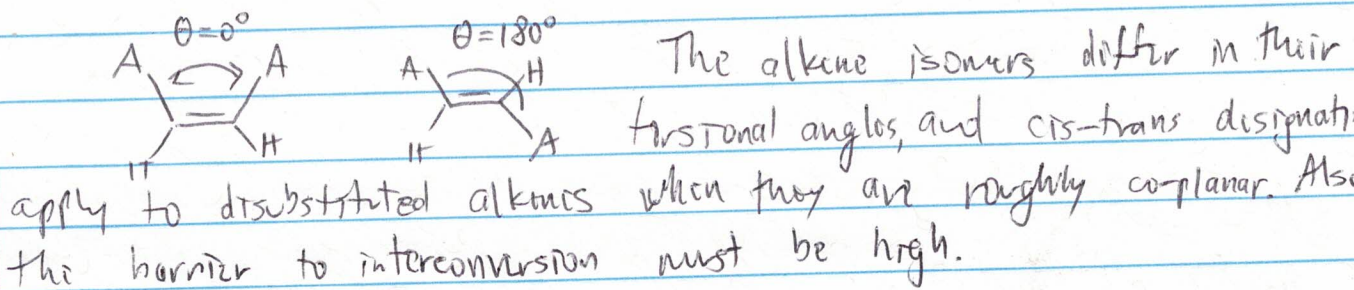 θ=0° θ=180°
A A A H The alkene isomers differ in their
H H H A torsional angles, and cis-trans designati
apply to disubstituted alkenes when they are roughly co-planar. Also
the barrier to interconversion must be high.